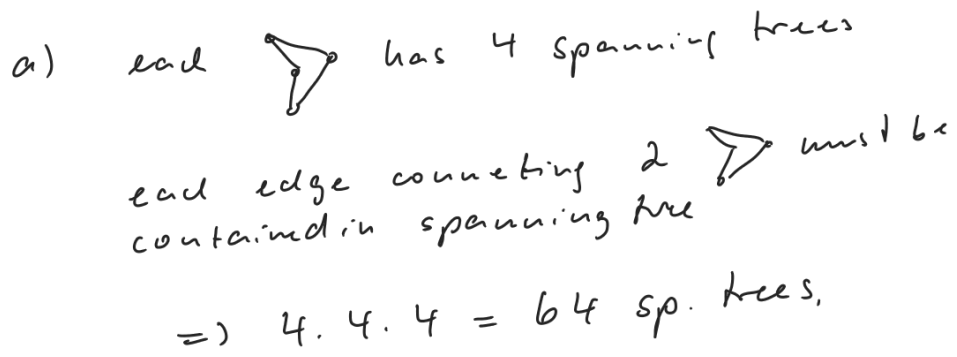 a) each has 4 spanning trees
each edge conneting 2 must be
contained in spanning tree
=> 4 . 4 . 4 = 64 sp. trees.